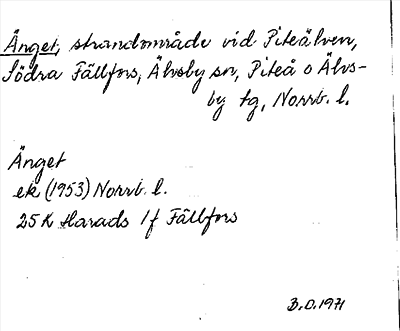 Änget, strandområde vid Piteälven,
Södra Fällfors, Älvsby sn, Piteå o Älvs-
by tg, Norrb. l.
Änget
ek (1953) Norrb. l.
25K Harads 1f Fällfors
B.O.1971